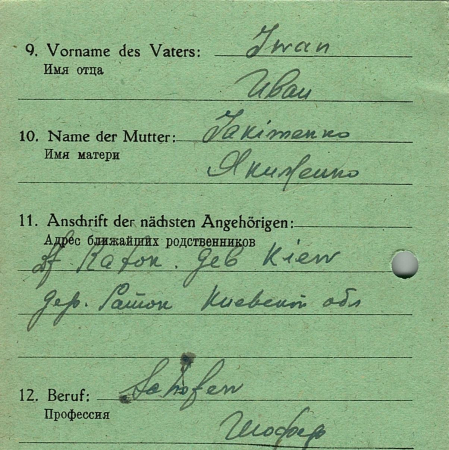 9. Vorname des Vaters: Iwan
Имя отца
Иван
10. Name der Mutter: Jakimenko
Имя матери
Якименко
11. Anschrift der nächsten Angehörigen:
Адрес ближайших родственников
Df. Raton. geb Kiew
дер. Ратон Киевской обл
12. Beruf: Schofer
Профессия
Шофер